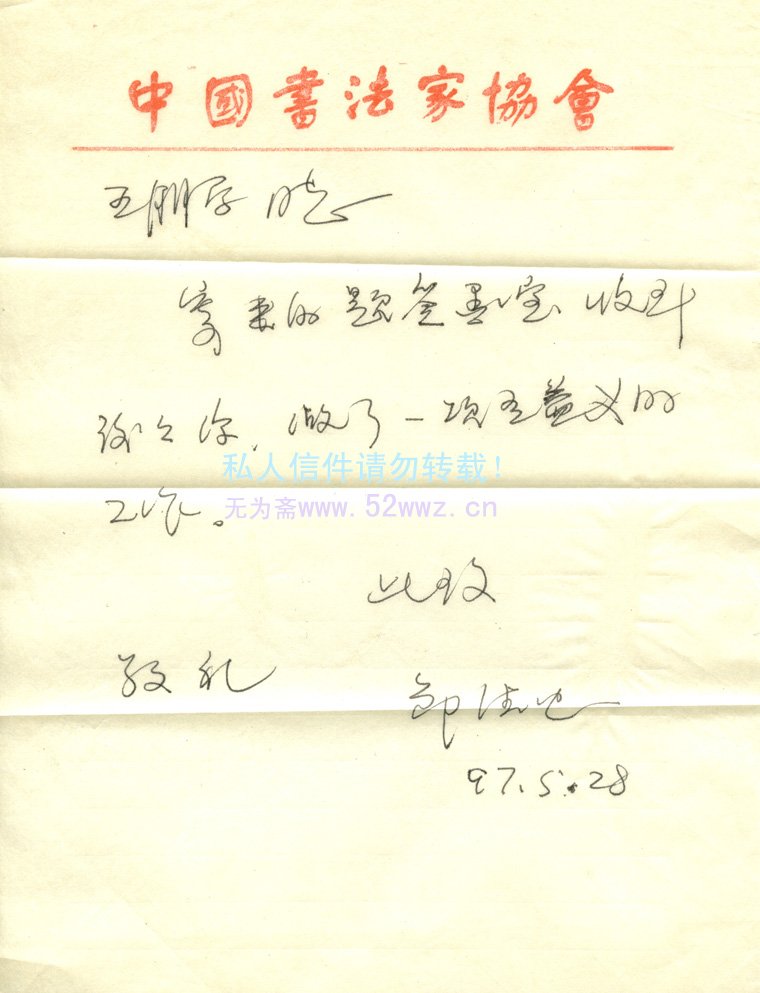 中國書法家協會
王鹏 同志
寄来的题签墨宝收到
谢谢你,做了一项有益义的
私人信件请勿转载!
工作。
无为斋www.52wwz.cn
此致
敬礼
97.5.28